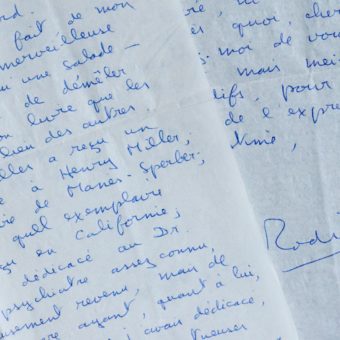 ord.
fait de mon
merveilleuse
u une salade —
de démêler
livre que les
lieu des autres.
lles a reçu un
é à Henry Miller,
re de Manès-Sperber;
quel exemplaire
çu en Californie;
dédicacé au Dr.
psychiatre assez connu,
usement revenu, mais de
ayant, quant à lui,
j'avais dédicacé,
quoi, cher
moi de vou
mais mei
ifs, pour
de l'expre
Rodi